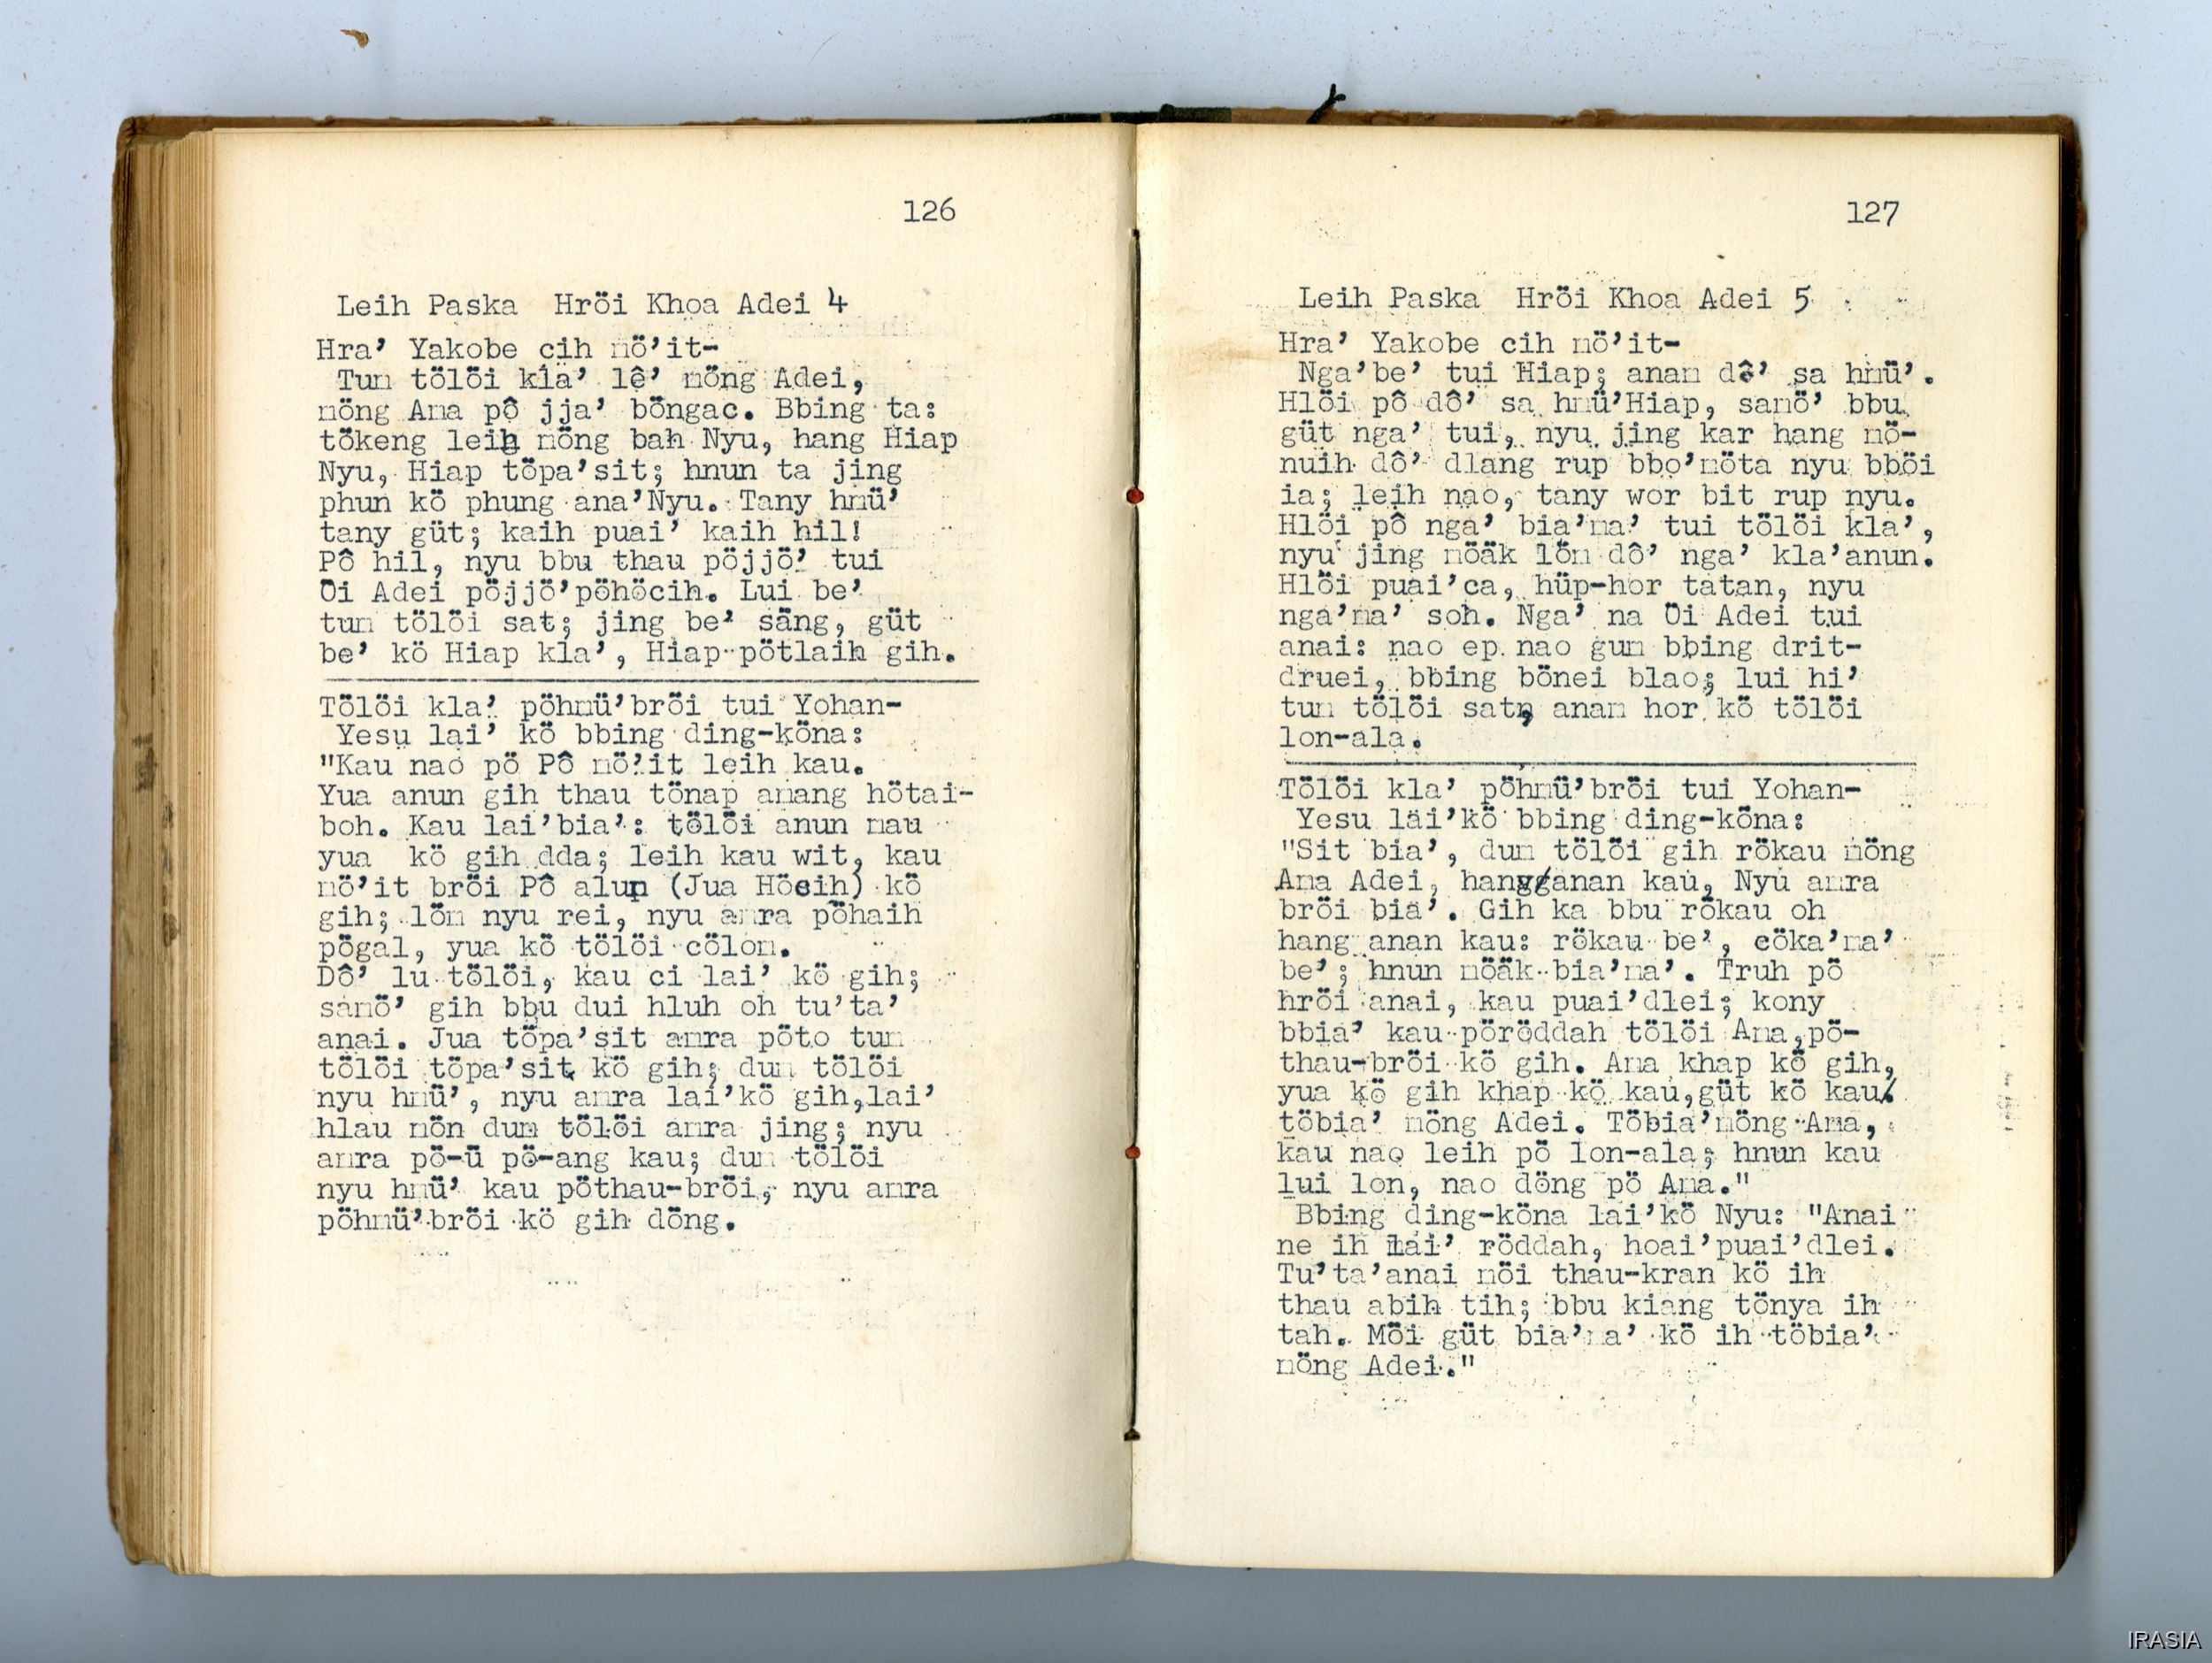 126
Leih Paska Hröi Khoa Adei 4
Hra’ Yakobe cih mö’it-
Tum tölöi kla’ lê’ möng Adei,
möng Ama pô jja’ böngac. Bbing ta:
tökeng leih möng bah Nyu, hang Hiap
Nyu, Hiap töpa’sit; hnun ta jing
phun kö phung ana’Nyu. Tany hmü’
tany güt; kaih puai’ kaih hil!
Pô hil, nyu bbu thau pöjjö’ tui
Oi Adei pöjjö’pöhöcih. Lui be’
tum tölöi sat; jing be’ säng, güt
be’ kö Hiap kla’, Hiap pötlaih gih.
Tölöi kla’ pöhmü’bröi tui Yohan-
Yesu lai’ kö bbing ding-köna:
"Kau nao pö Pô mö’it leih kau.
Yua anun gih thau tönap amang hötai-
boh. Kau lai’bia’: tölöi anun mau
yua kö gih dda; leih kau wit, kau
mö’it bröi Pô alum (Jua Höcih) kö
gih; löm nyu rei, nyu amra pöhaih
pögal, yua kö tölöi cölom.
Dô’ lu tölöi, kau ci lai’ kö gih;
samö’ gih bbu dui hluh oh tu’ta’
anai. Jua töpa’sit amra pöto tum
tölöi töpa’sit kö gih; dum tölöi
nyu hmü’, nyu amra lai’kö gih,lai’
hlau mön dum tölöi amra jing; nyu
amra pö-ü pö-ang kau; dum tölöi
nyu hmü’ kau pöthau-bröi, nyu amra
pöhmü’bröi kö gih döng.
127
Leih Paska Hröi Khoa Adei 5
Hra’ Yakobe cih mö’it-
Nga’be’ tui Hiap; anam dô’ sa hmü’.
Hlöi pô dô’ sa hmü’Hiap, samö’ bbu
güt nga’ tui, nyu jing kar hang mö-
nuih dô’ dlang rup bbo’möta nyu bböi
ia; leih nao, tany wor bit rup nyu.
Hlöi pô nga’ bia’ma’ tui tölöi kla’,
nyu jing möäk löm dô’ nga’ kla’anun.
Hlöi puai’ca, hüp-hor tatan, nyu
nga’ma’ soh. Nga’ na Oi Adei tui
anai: nao ep nao gum bbing drit-
druei, bbing bönei blao; lui hi’
tum tölöi sat, anam hor kö tölöi
lon-ala.
Tölöi kla’ pöhmü’bröi tui Yohan-
Yesu lai’kö bbing ding-köna:
"Sit bia’, dum tölöi gih rökau möng
Ama Adei, hang anan kau, Nyu amra
bröi bia’. Gih ka bbu rökau oh
hang anan kau: rökau be’, cöka’ma’
be’; hnun möäk bia’ma’. Truh pö
hröi anai, kau puai’dlei; kony
bbia’ kau pöröddah tölöi Ama,pö-
thau-bröi kö gih. Ama khap kö gih,
yua kö gih khap kö kau,güt kö kau
töbia’ möng Adei. Töbia’möng Ama,
kau nao leih pö lon-ala; hnun kau
lui lon, nao döng pö Ama."
Bbing ding-köna lai’kö Nyu: "Anai
ne ih lai’ röddah, hoai’puai’dlei.
Tu’ta’anai möi thau-kran kö ih
thau abih tih; bbu kiang tönya ih
tah. Möi güt bia’ma’ kö ih töbia’
möng Adei."
IRASIA